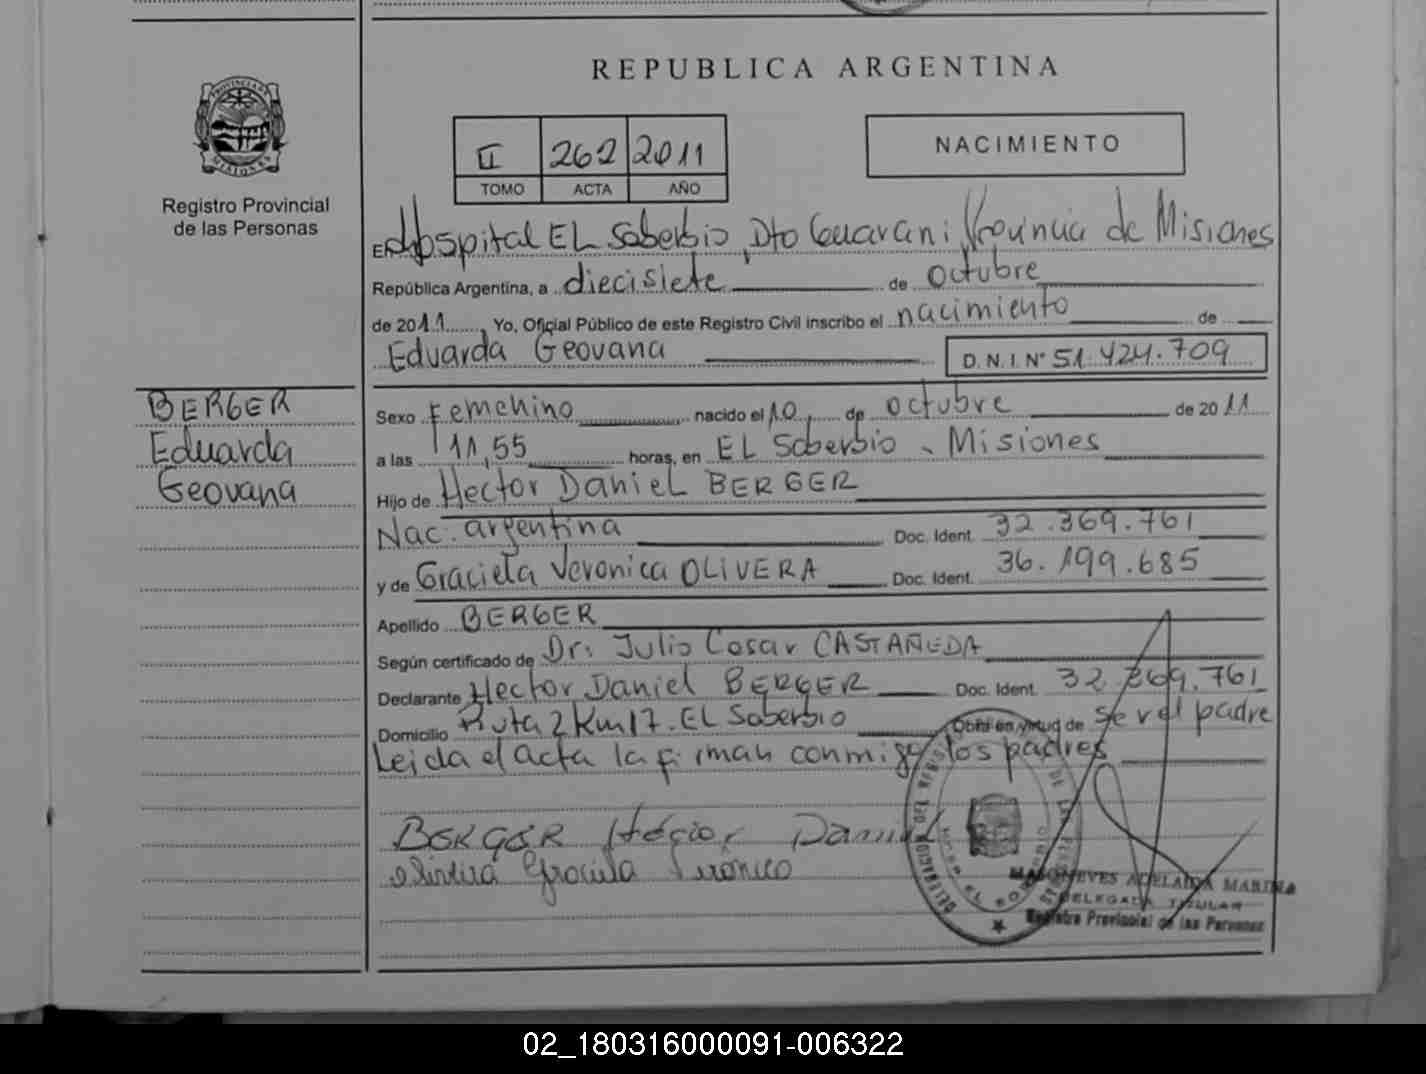 REPUBLICA ARGENTINA
PROVINCIA DE
MISIONES
Registro Provincial
de las Personas
II 262 2011
TOMO ACTA AÑO
NACIMIENTO
En Hospital EL Soberbio, Dto Guarani, Provincia de Misiones
República Argentina, a diecisiete de octubre
de 2011, Yo, Oficial Público de este Registro Civil inscribo el nacimiento de
Eduarda Geovana D.N.I. Nº 51.424.709
BERGER
Eduarda
Geovana
Sexo Femenino nacido el 10 de octubre de 2011
a las 11,55 horas, en EL Soberbio - Misiones
Hijo de Hector Daniel BERGER
Nac. argentina Doc. Ident. 32.369.761
y de Graciela Veronica OLIVERA Doc. Ident. 36.199.685
Apellido BERGER
Según certificado de Dr. Julio Cesar CASTAÑEDA
Declarante Hector Daniel BERGER Doc. Ident. 32.369.761
Domicilio Ruta 2 Km 17. EL Soberbio Obra en virtud de ser el padre
Leida el acta la firman conmigo los padres
BERGER Héctor Daniel
Olivera Graciela Veronica
ADELAIDA MARINA
DELEGADA TITULAR
Registro Provincial de las Personas
02_180316000091-006322